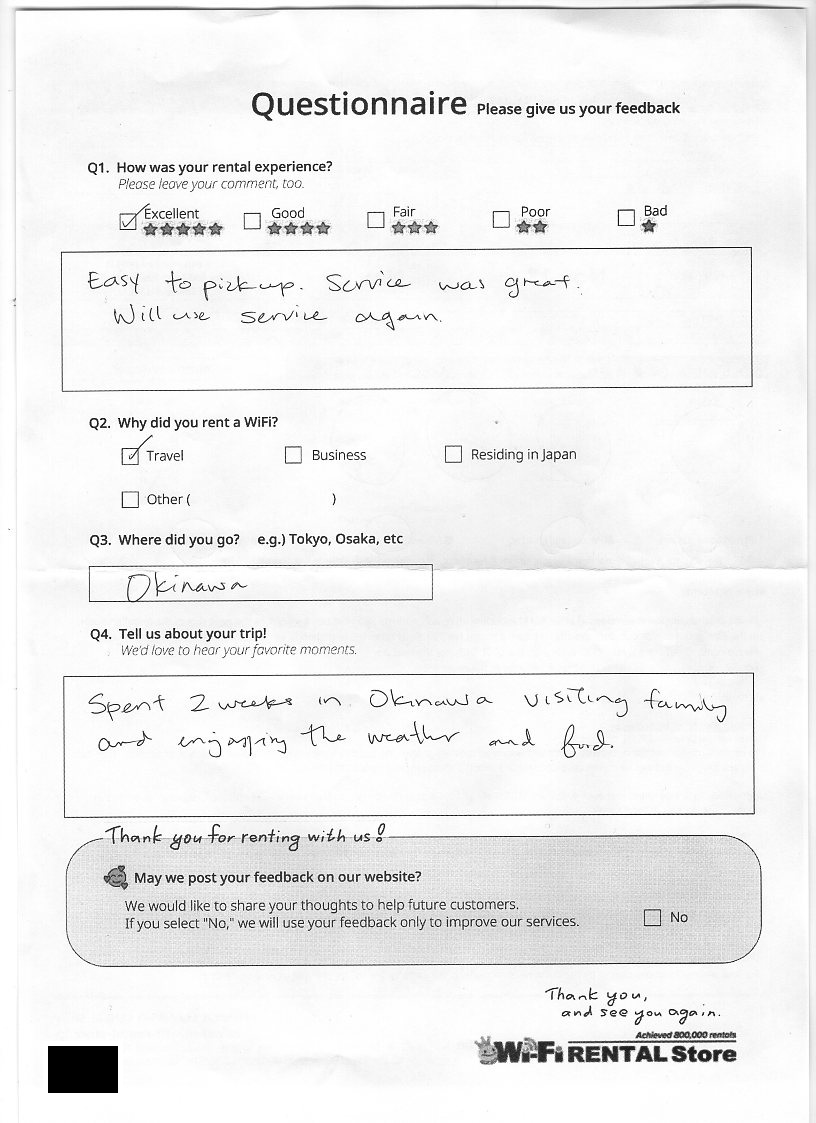 Questionnaire Please give us your feedback
Q1. How was your rental experience?
Please leave your comment, too.
Excellent Good Fair Poor Bad
★★★★★ ★★★★ ★★★ ★★ ★
Easy to pick up. Service was great.
Will use service again.
Q2. Why did you rent a WiFi?
Travel Business Residing in Japan
Other ( )
Q3. Where did you go? e.g.) Tokyo, Osaka, etc
Okinawa
Q4. Tell us about your trip!
We'd love to hear your favorite moments.
Spent 2 weeks in Okinawa visiting family
and enjoying the weather and food.
Thank you for renting with us!
May we post your feedback on our website?
We would like to share your thoughts to help future customers.
If you select "No," we will use your feedback only to improve our services.
No
Thank you,
and see you again.
Achieved 800,000 rentals
Wi-Fi RENTAL Store